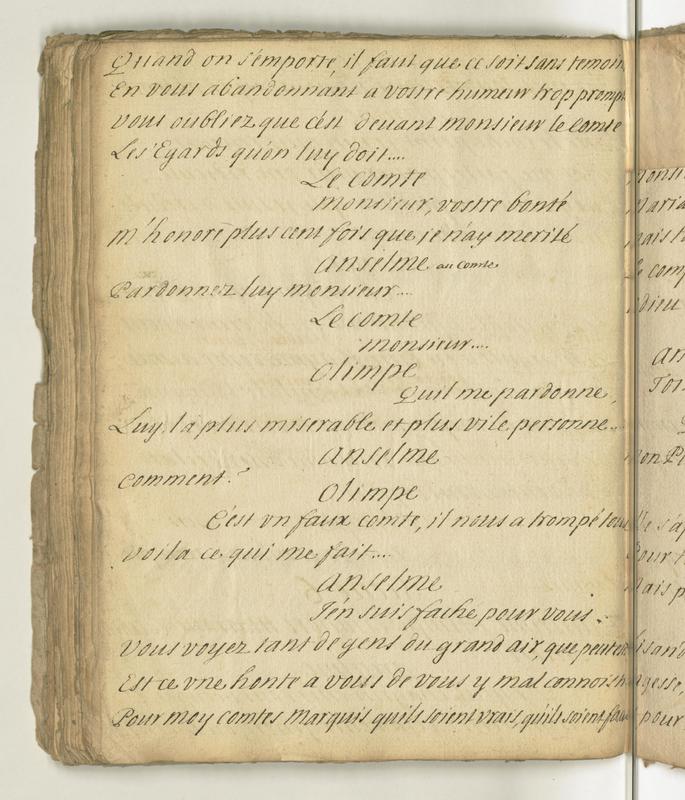 Quand on s'emporte, il faut que ce soit sans temoin
En vous abandonnant a vostre humeur trop prompt
vous oubliez que c'est devant monsieur le comte
Les Egards qu'on luy doit....
Le comte
monsieur, vostre bonté
m'honore plus cent fois que je n'ay merité
anselme au comte
Pardonnez luy monsieur....
Le comte
monsieur....
Olimpe
Quil me pardonne,
Luy, la plus miserable et plus vile personne...
anselme
comment?
Olimpe
C'est vn faux comte, il nous a trompé tous
voila ce qui me fait....
anselme
J'en suis fache pour vous.
vous voyez tant de gens du grand air, que peut
Est ce vne honte a vous de vous y mal connoist
Pour moy comtes marquis quils soient vrais, quils soient faux